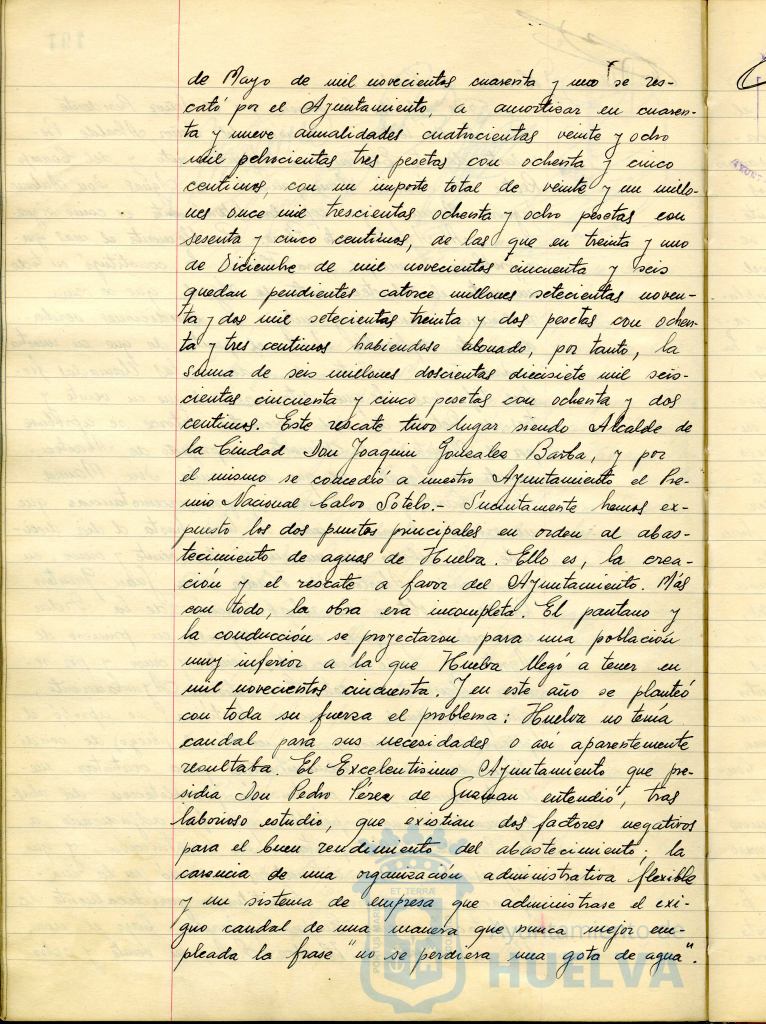 de Mayo de mil novecientos cuarenta y uno se res-
cató por el Ayuntamiento, a amortizar en cuaren-
ta y nueve annalidades cuatrocientas veinte y ocho
mil tres pesetas con ochenta y cinco
centimos, con un importe total de veinte y un millo-
nes once mil trescientas ochenta y ocho pesetas con
sesenta y cinco centimos, de las que en treinta y uno
de Diciembre de mil novecientos cincuenta y seis
quedan pendientes catorce millones setecientas noven-
ta y dos mil setecientas treinta y dos pesetas con ochen-
ta y tres centimos habiendose abonado, por tanto, la
suma de seis millones doscientas diecisiete mil seis-
cientas cincuenta y cinco pesetas con ochenta y dos
centimos. Este rescate tuvo lugar siendo Alcalde de
la Ciudad Don Joaquin Gonzalez Barba, y por
el mismo se concedió a nuestro Ayuntamiento el Pre-
mio Nacional Calvo Sotelo.- Sucintamente hemos ex-
puesto los dos puntos principales en orden al abas-
tecimiento de aguas de Huelva. Ello es, la crea-
ción y el rescate a favor del Ayuntamiento. Más
con todo, la obra era incompleta. El pantano y
la conducción se proyectaron para una población
muy inferior a la que Huelva llegó a tener en
mil novecientos cincuenta. Y en este año se planteó
con toda su fuerza el problema: Huelva no tenía
caudal para sus necesidades o así aparentemente
resultaba. El Excelentísimo Ayuntamiento que pre-
sidia Don Pedro Pérez de Guzman entendió, tras
laborioso estudio, que existian dos factores negativos
para el buen rendimiento del abastecimiento; la
carencia de una organización administrativa flexible
y un sistema de empresa que administrase el exi-
guo caudal de una manera que nunca mejor em-
pleada la frase "no se perdiera una gota de agua".
Ayuntamiento
HUELVA